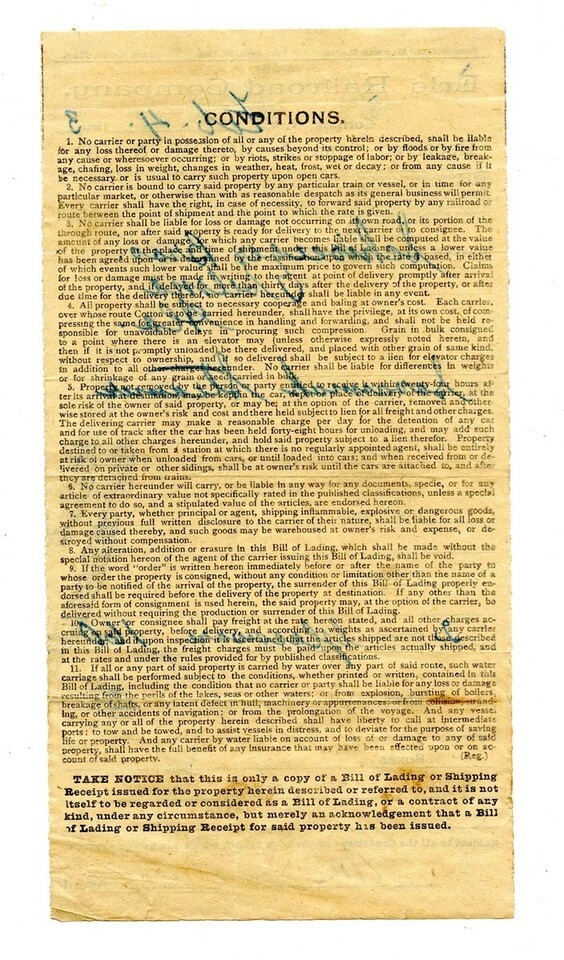 Erie Railroad Company.
CONDITIONS.
1. No carrier or party in possession of all or any of the property herein described, shall be liable
for any loss thereof or damage thereto, by causes beyond its control; or by floods or by fire from
any cause or wheresoever occurring; or by riots, strikes or stoppage of labor; or by leakage, break-
age, chafing, loss in weight, changes in weather, heat, frost, wet or decay; or from any cause if it
be necessary or is usual to carry such property upon open cars.
2. No carrier is bound to carry said property by any particular train or vessel, or in time for any
particular market, or otherwise than with as reasonable despatch as its general business will permit
Every carrier shall have the right, in case of necessity, to forward said property by any railroad or
route between the point of shipment and the point to which the rate is given.
3. No carrier shall be liable for loss or damage not occurring on its own road or its portion of the
through route, nor after said property is ready for delivery to the next carrier or to consignee. The
amount of any loss or damage for which any carrier becomes liable shall be computed at the value
of the property at the place and time of shipment under this Bill of Lading, unless a lower value
has been agreed upon or is determined by the classification upon which the rate is based, in either
of which events such lower value shall be the maximum price to govern such computation. Claims
for loss or damage must be made in writing to the agent at point of delivery promptly after arrival
of the property, and if delayed for more than thirty days after the delivery of the property, or after
due time for the delivery thereof, no carrier hereunder shall be liable in any event.
4. All property shall be subject to necessary cooperage and baling at owner's cost. Each carrier,
over whose route Cotton is to be carried hereunder, shall have the privilege, at its own cost, of com-
pressing the same for greater convenience in handling and forwarding, and shall not be held re-
sponsible for unavoidable delays in procuring such compression. Grain in bulk consigned
to a point where there is an elevator may (unless otherwise expressly noted herein, and
then if it is not promptly unloaded) be there delivered, and placed with other grain of same kind,
without respect to ownership, and if so delivered shall be subject to a lien for elevator charges
in addition to all other charges hereunder. No carrier shall be liable for differences in weights
or for shrinkage of any grain or seed carried in bulk.
5. Property not removed by the person or party entitled to receive it within twenty-four hours af-
ter its arrival at destination, may be kept in the car, depot or place of delivery of the carrier, at the
sole risk of the owner of said property, or may be, at the option of the carrier, removed and other-
wise stored at the owner's risk and cost and there held subject to lien for all freight and other charges.
The delivering carrier may make a reasonable charge per day for the detention of any car
and for use of track after the car has been held forty-eight hours for unloading, and may add such
charge to all other charges hereunder, and hold said property subject to a lien therefor. Property
destined to or taken from a station at which there is no regularly appointed agent, shall be entirely
at risk of owner when unloaded from cars, or until loaded into cars; and when received from or de-
livered on private or other sidings, shall be at owner's risk until the cars are attached to, and after
they are detached from trains.
6. No carrier hereunder will carry, or be liable in any way for any documents, specie, or for any
article of extraordinary value not specifically rated in the published classifications, unless a special
agreement to do so, and a stipulated value of the articles, are endorsed hereon.
7. Every party, whether principal or agent, shipping inflammable, explosive or dangerous goods,
without previous full written disclosure to the carrier of their nature, shall be liable for all loss or
damage caused thereby, and such goods may be warehoused at owner's risk and expense, or de-
stroyed without compensation.
8. Any alteration, addition or erasure in this Bill of Lading, which shall be made without the
special notation hereon of the agent of the carrier issuing this Bill of Lading, shall be void.
9. If the word "order" is written hereon immediately before or after the name of the party to
whose order the property is consigned, without any condition or limitation other than the name of a
party to be notified of the arrival of the property, the surrender of this Bill of Lading properly en-
dorsed shall be required before the delivery of the property at destination. If any other than the
aforesaid form of consignment is used herein, the said property may, at the option of the carrier, be
delivered without requiring the production or surrender of this Bill of Lading.
10. Owner or consignee shall pay freight at the rate below stated, and all other charges ac-
cruing on said property, before delivery, and according to weights as ascertained by any carrier
hereunder; and if upon inspection it is ascertained that the articles shipped are not those described
in this Bill of Lading, the freight charges must be paid upon the articles actually shipped, and
at the rates and under the rules provided for by published classifications.
11. If all or any part of said property is carried by water over any part of said route, such water
carriage shall be performed subject to the conditions, whether printed or written, contained in this
Bill of Lading, including the condition that no carrier or party shall be liable for any loss or damage
resulting from the perils of the lakes, seas or other waters; or from explosion, bursting of boilers,
breakage of shafts, or any latent defect in hull, machinery or appurtenances; or from collision, strand-
ing, or other accidents of navigation; or from the prolongation of the voyage. And any vessel
carrying any or all of the property herein described shall have liberty to call at intermediate
ports; to tow and be towed, and to assist vessels in distress, and to deviate for the purpose of saving
life or property. And any carrier by water liable on account of loss of or damage to any of said
property, shall have the full benefit of any insurance that may have been effected upon or on ac-
count of said property. (Reg.)
TAKE NOTICE that this is only a copy of a Bill of Lading or Shipping
Receipt issued for the property herein described or referred to, and it is not
itself to be regarded or considered as a Bill of Lading, or a contract of any
kind, under any circumstance, but merely an acknowledgement that a Bill
of Lading or Shipping Receipt for said property has been issued.